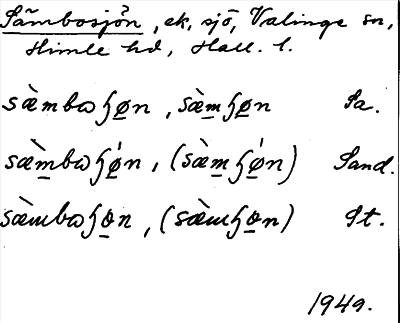 Sämbosjön, ek, sjö, Valinge sn,
Himle hd, Hall. l.
sæ̀mbωɧøn, sæ̀mɧøn Sa.
sæ̀mbωɧǿn, (sæ̀mɧǿn) Sand.
sæ̀mbωɧɵn, (sæ̀mɧɵn) St.
1949.